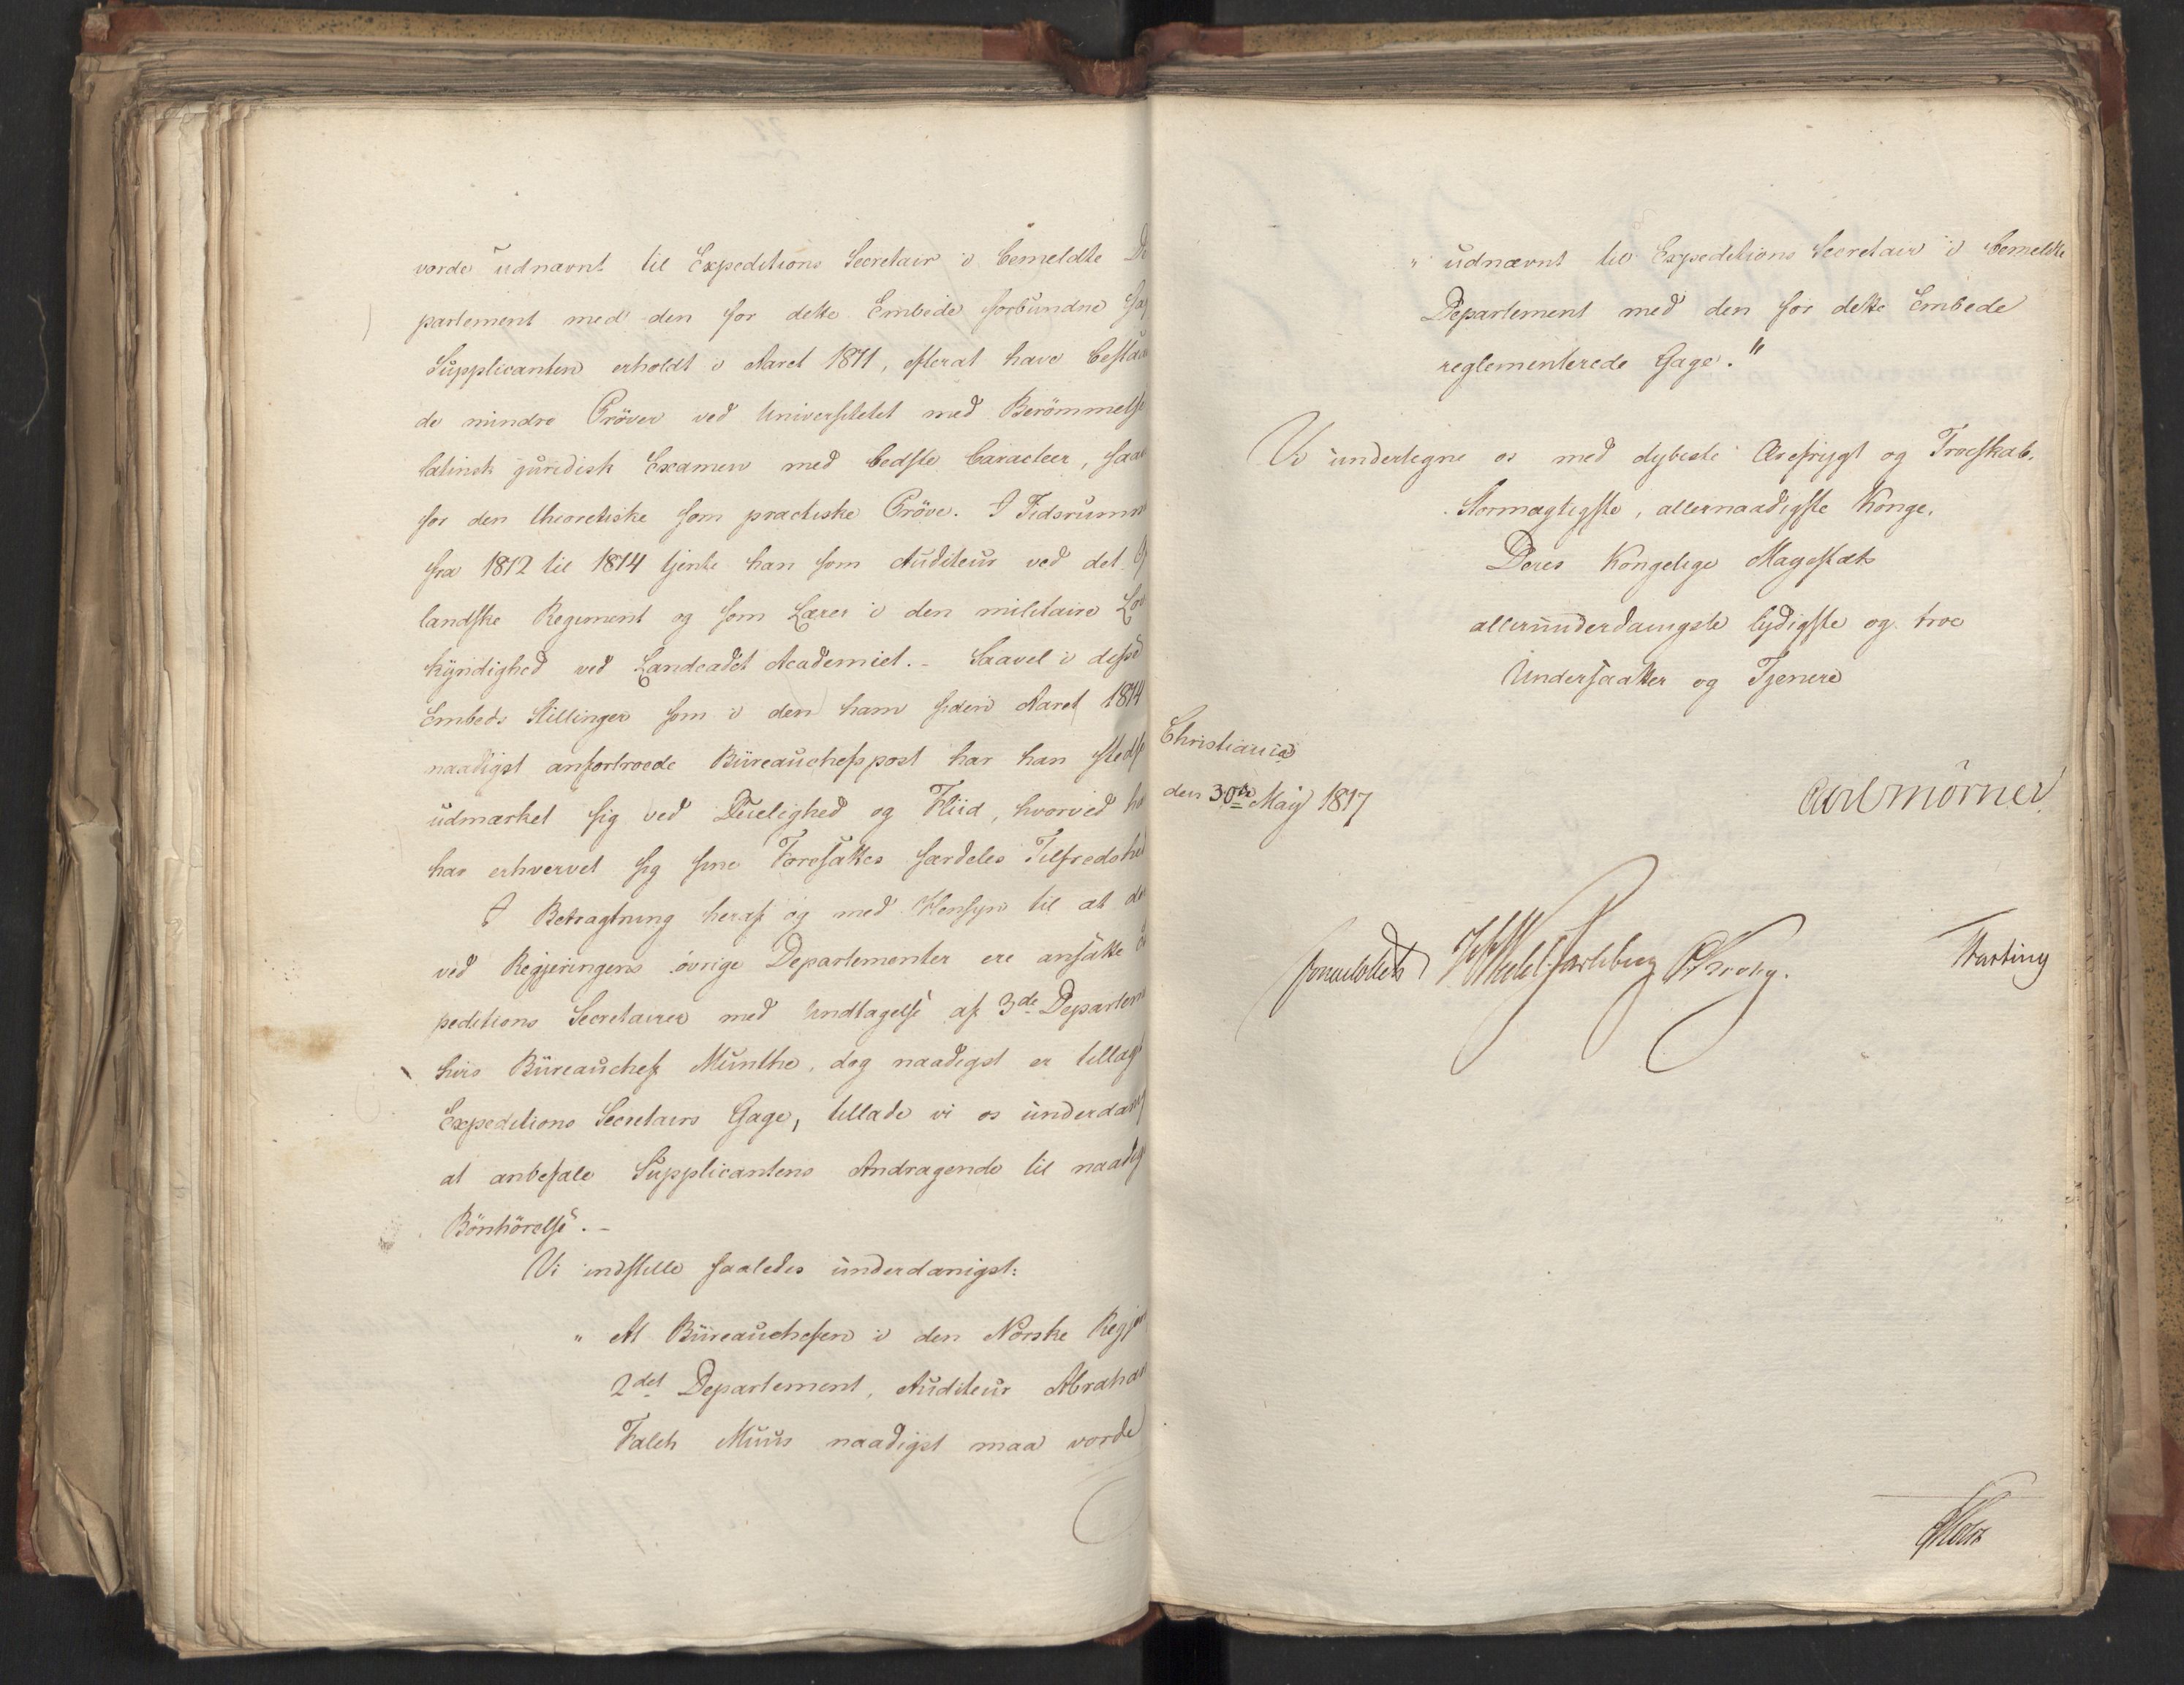 vorde udnævnt til Expeditions Secretair i bemeldte De
partement med den for dette Embede forbundne Gag
Supplicanten erholdt i Aaret 1811, efterat have bestaa
de mindre Prøver ved Universitetet med Berømmelse
latinsk juridisk Examen med bedste Caracteer, saav
for den theoretiske som practiske Prøve. I Tidsrumm
fra 1812 til 1814 tjente han som Auditeur ved det
landske Regiment og som Lærer i den militaire Lov
kyndighed ved Landcadet Academiet. - Saavel i disse
Embeds Stillinger som i den ham siden Aaret 1814
naadigst anfortroede Büreauchefspost har han stedse
udmærket sig ved Duelighed og Fliid, hvorved ha
har erhvervet sig sine Foresattes særdeles Tilfredshed
I Betragtning heraf og med Hensyn til at der
ved Regjeringens øvrige Departementer ere ansatte Ex
peditions Secretairer med Undtagelse af 3de Departem
hvis Büreauchef Munthe, dog naadigst er tillagt
Expeditions Secretairs Gage, tillade vi os underdanig
at anbefale Supplicantens Andragende til naadig
Bönhörelse. -
Vi indstille saaledes underdanigst:
" At Büreauchefen i den Norske Regjer
2det Departement, Auditeur Abraham
Falch Muus naadigst maa vorde
" udnævnt til Expeditions Secretair i bemeldte
Departement med den for dette Embede
reglementerede Gage."
Vi undertegne os med dybeste Ærefrygt og Troeskab.
Stormægtigste, allernaadigste Konge,
Deres Kongelige Majestæts
allerunderdanigste lydigste og troe
Undersaatter og Tjenere
Christiania
den 30te May 1817
Carl Mörner
Sommerhielm HWedel-Jarlsberg CKrohg. Hasting